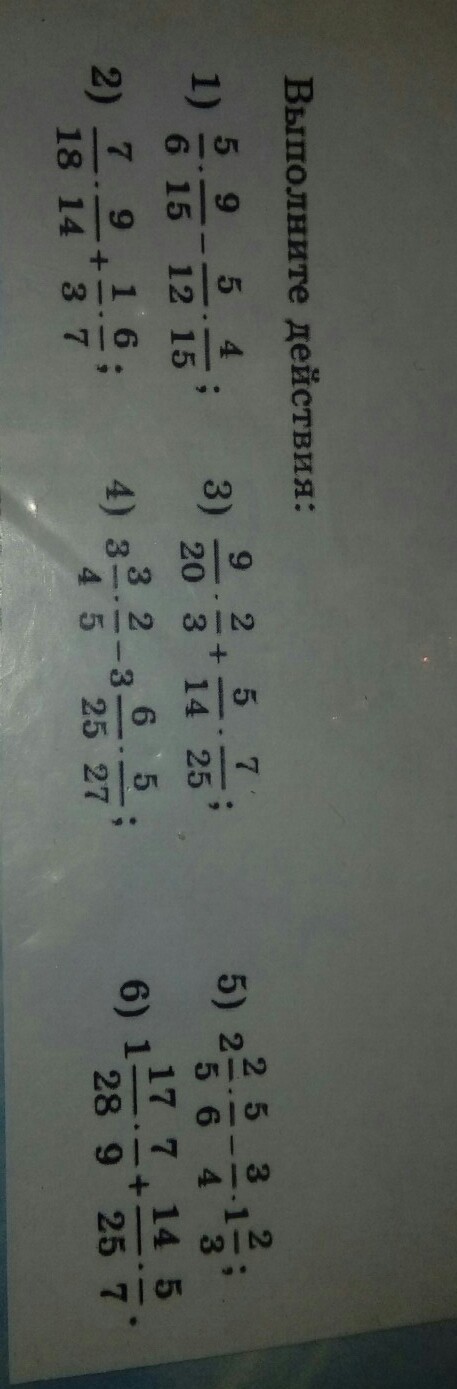 Выполните действия:
1) 5/6 · 9/15 − 5/12 · 4/15;
2) 7/18 · 9/14 + 1/3 · 6/7;
3) 9/20 · 2/3 + 5/14 · 7/25;
4) 3 3/4 · 2/5 − 3 6/25 · 5/27;
5) 2 2/5 · 5/6 − 3/4 · 1 2/3;
6) 1 17/28 · 7/9 + 14/25 · 5/7.